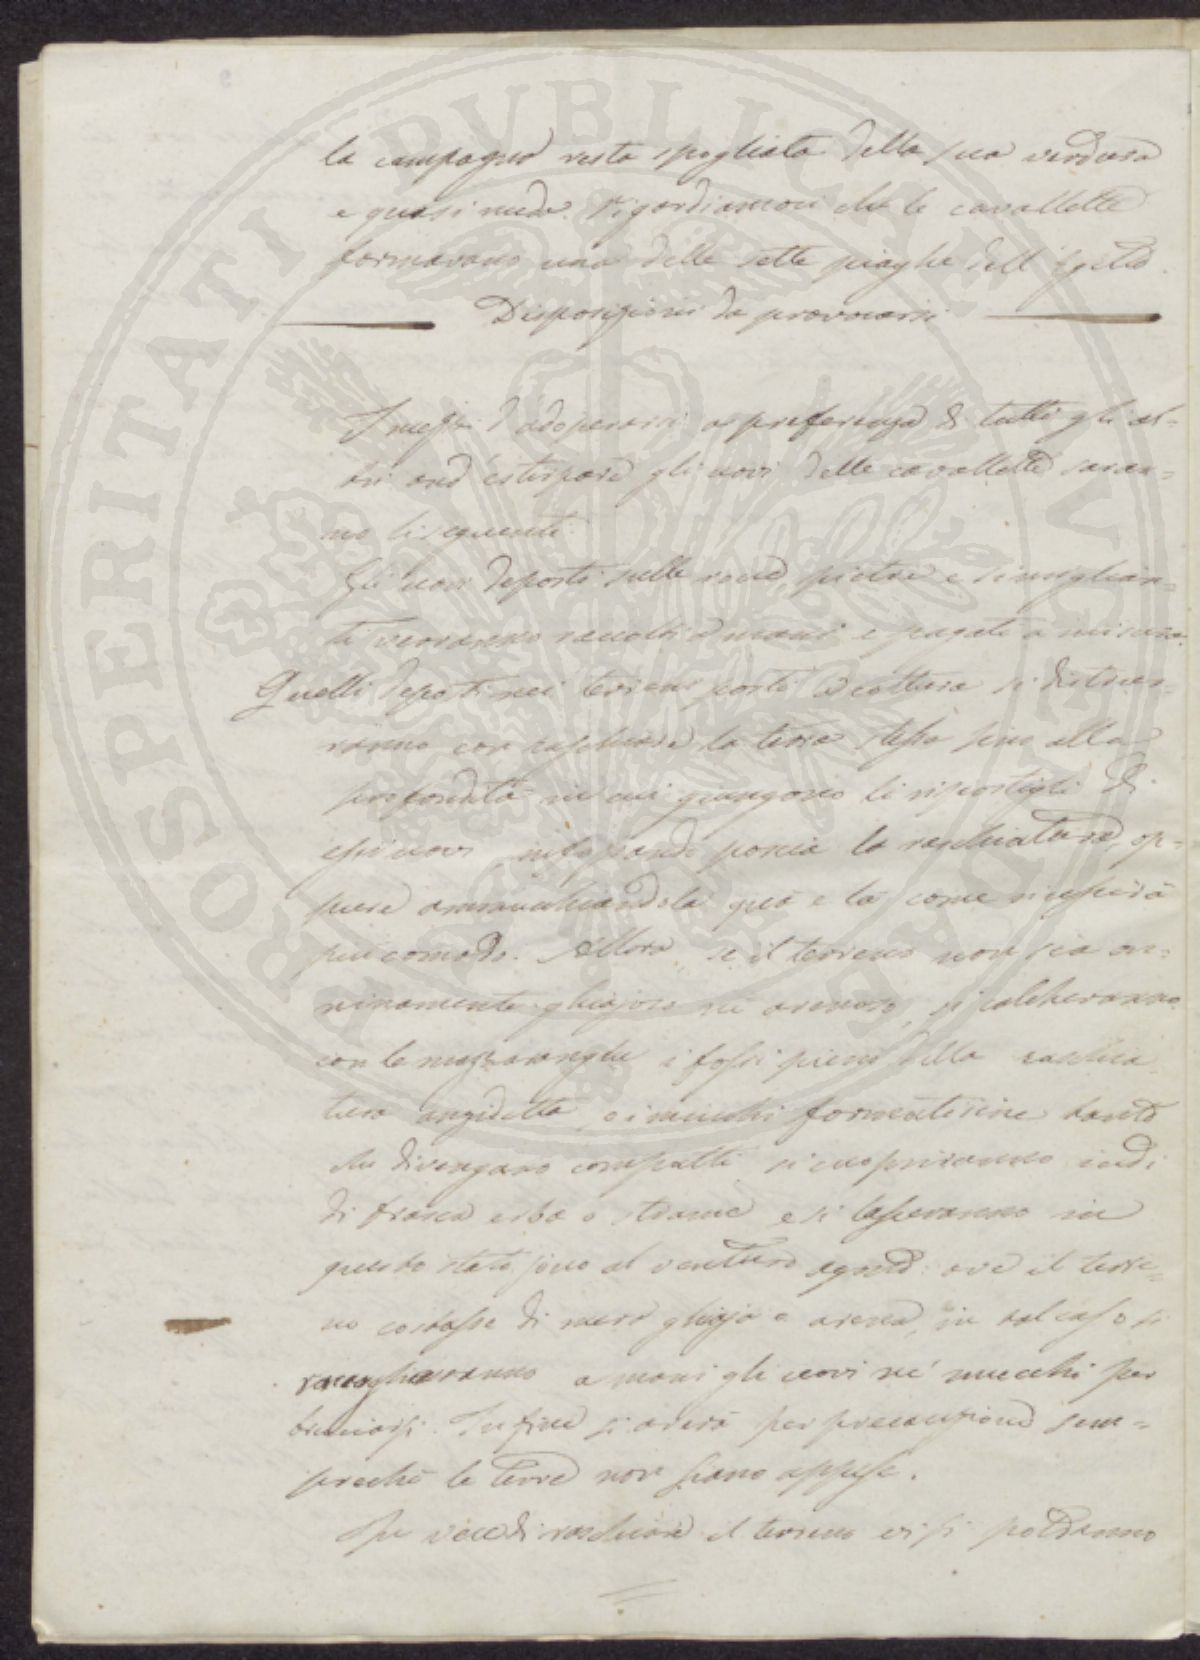 la campagna resta spogliata della sua verdura
e quasi nuda. Rigordiamoci che le cavallette
formavano una delle sette piaghe dell'Egitto.
Disposizioni da provocarsi
I mezzi d'adoperarsi a preferenza di tutti gli al-
tri ond'estirpare gli uovi delle cavallette saran-
no li seguenti
Gli uovi deposti sulle roccie, pietre e simiglian-
ti verranno raccolti a mani e pagati a misura.
Quelli deposti nei terreni posti a coltura si distrug-
ranno con raschiare la terra stessa sino alla
profondità in cui giungono li ripostigli di
essi uovi infossando poscia la raschiatura, op-
pure ammucchiandola quà e là come riuscirà
più comodo. Allora, se il terreno non sia on-
ninamente ghiajoso nè arenoso, si calcheranno
con le mazzaranghe i fossi pieni della raschia
tura anzidetta, o i mucchi formatisine tanto
che divengano compatti si cuopriranno indi
di frasca erba o strame e si lasceranno in
questo stato sino al venturo agosto: ove il terre-
no costasse di mera ghiaja o arena, in tal caso si
raccoglieranno a mani gli uovi ne' mucchi per
bruciarsi. In fine si arerà per precauzione sem-
precchè le terre non siano appese.
In vece di raschiare il terreno vi si potranno
PROSPERITATI PVBLICAE AVGENDAE